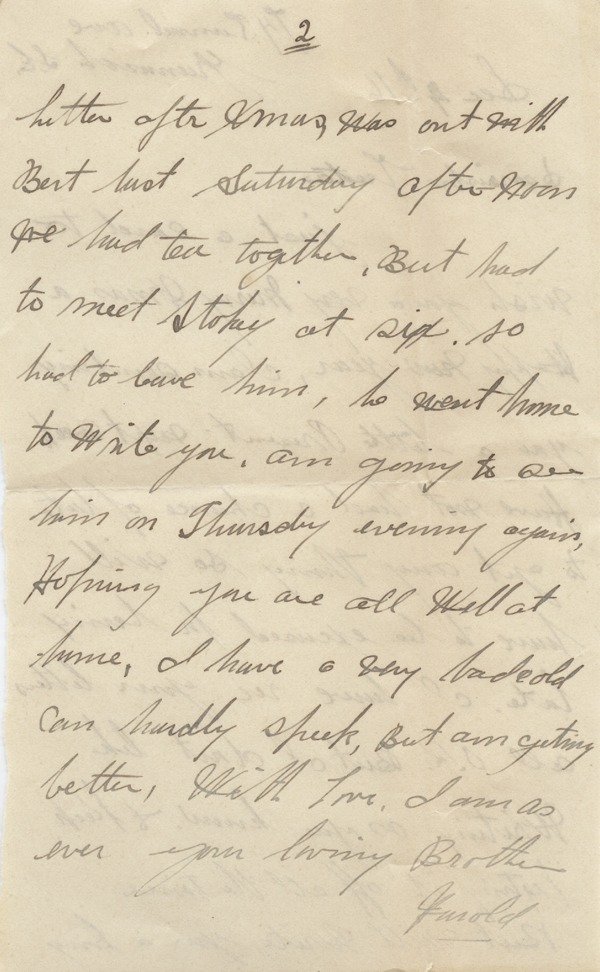 2
letter aftr Xmas, was out with
Bert last Saturday after noon
We had tea together, But had
to meet Stokey at six. so
had to leave him, he went home
to Write you. am going to see
him on Thursday evening again,
Hopining you are all Well at
home, I have a very bad cold
Can hardly speek, But am getting
better, With Love. I am as
ever your loving Brother
Harold